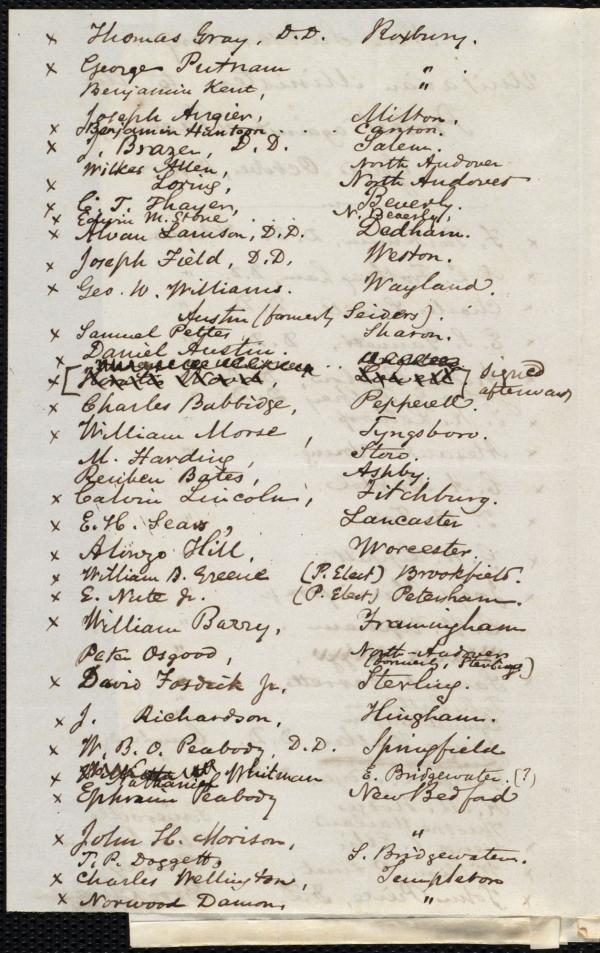 x Thomas Gray, D.D. Roxbury.
x George Putnam "
Benjamin Kent, "
Joseph Angier, Milton.
x Benjamin Huntoon . . . . Canton.
x J. Brazer, D.D. Salem.
Wilkes Allen, North Andover
x Loring, North Andover
x C. T. Thayer, Beverly.
x Edwin M. Stone . . . . N. Beverly,
x Alvan Lamson, D.D. Dedham.
x Joseph Field, D.D. Weston.
x Geo. W. Williams. Wayland.
Austin (formerly Seiders).
x Samuel Pettes Sharon.
Daniel Austin.
x [ Lowell ] signed afterward
x Charles Babbidge, Pepperell.
x William Morse, Tyngsboro.
M. Harding, Stow.
Reuben Bates, Ashby,
x Calvin Lincoln, Fitchburg.
x E. H. Sears, Lancaster
x Alonzo Hill, Worcester.
x William B. Greene (P. Elect) Brookfield.
x E. Nute Jr. (P. Elect) Petersham.
x William Barry, Framingham
Peter Osgood, North-Andover
(formerly, Sterling)
x David Fosdick Jr, Sterling.
x J. Richardson, Hingham.
x W. B. O. Peabody, D.D. Springfield
x Nathaniel Whitman E. Bridgewater. (?)
x Ephraim Peabody New Bedford
x John H. Morison, "
T. P. Doggett, S. Bridgewater.
x Charles Wellington, Templeton
x Norwood Damon, "